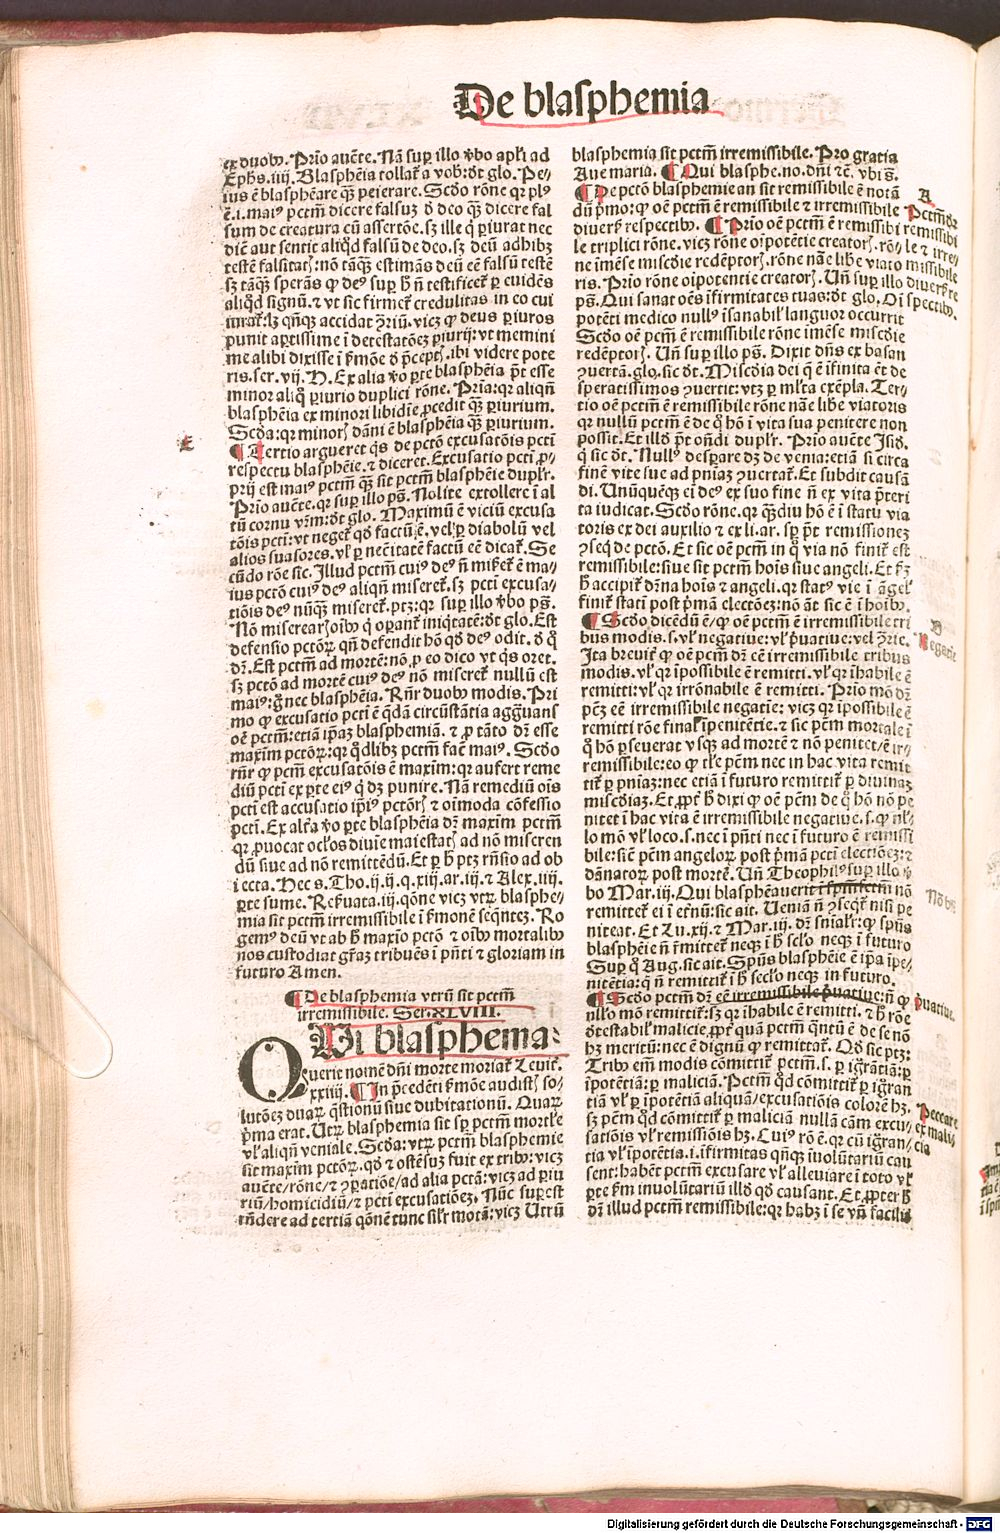 De blasphemia
ex duobꝰ. Prīo auc̄te. Nā suꝑ illo v̄bo apl'i ad
Ephs. iiij. Blasphēia tollat̃ a vob̃: d̃t glo. Pe-
ius ē blasphēare qȝ̄ peierare. Scd̃o rōne qꝛ plꝰ
ē .i. maiꝰ pctm̄ dicere falsuȝ d̃ deo qȝ̄ dicere fal
sum de creatura cū assertōe. sȝ ille q̇ ꝑiurat nec
dic̄ aut sentit aliqd̃ falsū de deo. sȝ deū adhibȝ
testē falsitatꝭ: nō tāqȝ̄ estimās deū eē falsū testē
sȝ tāqȝ̄ sperās ꝙ deꝰ suꝑ h̃ ñ testificet̃ ꝑ euidēs
aliqd̃ signū. ⁊ vt sic firmet̃ credulitas in eo cui
iurat̃. lȝ qn̄qȝ accidat ꝯ̃riū. vicȝ ꝙ deus ꝑiuros
punit aꝑtissime ī detestatōeȝ ꝑiurij: vt memini
me alibi dixisse ī ẜmōe d̃ p̄ceptꝭ. ibi videre pote
ris. ser. vij. H. Ex alia v̄o ꝑte blasphēia p̄t esse
minor aliq̊ ꝑiurio duplici rōne. Prīa: qꝛ aliqn̄
blasphēia ex minori libidīe ꝓcedit qȝ̄ ꝑiurium.
Scd̃a: qꝛ minorꝭ dāni ē blasphēia qȝ̄ ꝑiurium.
E
¶ Tertio argueret q̇s de pctō excusatōis pcti
respectu blasphēie. ⁊ diceret. Excusatio pcti ꝓ-
prij est maiꝰ pctm̄ qȝ̄ sit pctm̄ blasphēie duplr̃.
Prīo auc̄te. qꝛ suꝑ illo ps̃. Nolite extollere ī al
tū cornu vr̄m: d̃t glo. Maximū ē viciū excusa
tōis pcti: vt neget̃ qd̃ factū ē. vel' ꝑ diabolū vel
alios suasores. vl' ꝑ nec̄itatē factū eē dicat̃. Se
cūdo rōe sic. Illud pctm̄ cuiꝰ deꝰ ñ miẜet̃ ē ma-
ius pctō cuiꝰ deꝰ aliqn̄ miseret̃. sȝ pcti excusa-
tiōis deꝰ nūqȝ miseret̃. ptȝ: qꝛ suꝑ illo v̄bo ps̃.
Nō miserearꝭ oībꝰ q̇ oꝑant̃ iniq̇tatē: d̃t glo. Est
defensio pctōꝝ qn̄ defendit hō qd̃ deꝰ odit. d̃ q̊
dȝ̃. Est pctm̄ ad mortē: nō ꝓ eo dico vt q̇s oret.
sȝ pctō ad mortē cuiꝰ deꝰ nō miseret̃ nullū est
maiꝰ: g̊ nec blasphēia. Rn̄r duobꝰ modis. Pri
mo ꝙ excusatio pcti ē q̄dā circūstātia aggrauans
oē pctm̄: etiā ip̄aȝ blasphemiā. ⁊ ꝓ tāto dȝ̃ esse
maxim̄ pctōꝝ: qꝛ qd̃libȝ pctm̄ fac̄ maiꝰ. Scd̃o
rn̄r ꝙ pctm̄ excusatōis ē maxim̄: qꝛ aufert reme
diū pcti ex ꝑte eiꝰ q̇ dȝ punire. Nā remediū ois
pcti est accusatio ip̄iꝰ pctōrꝭ ⁊ oīmoda cōfessio
pcti. Ex alt̃a v̄o ꝑte blasphēia dȝ̃ maxim̄ pctm̄
qꝛ ꝓuocat oc̄los diuīe maiestatꝭ ad nō miseren
dū siue ad nō remittēdū. Et ꝑ h̃ ptȝ rn̄sio ad ob
iecta. Hec s. Tho. ij. ij. q. xiij. ar. iij. ⁊ Alex. iiij.
ꝑte sume. Reẜuata. iij. qōne vicȝ vtꝝ blasphe-
mia sit pctm̄ irremissibile ī ẜmonē seq̄nteȝ. Ro
gemꝰ deū vt ab h̃ maxīo pctō ⁊ oībꝰ mortalibꝰ
nos custodiat gr̃aȝ tribuēs ī pn̄ti ⁊ gloriam in
futuro Amen.
¶ De blasphemia vtrū sit pctm̄
irremissibile. Ser. XLVIII.
QUi blasphema-
uerit noīnē dn̄i morte moriat̃ Leuit̃.
xxiiij. ¶ In p̄cedēti ẜmōe audistꝭ so-
lutōeȝ duaꝝ q̄stionū siue dubitationū. Quaꝝ
p̃ma erat. Utꝝ blasphemia sit sp̃ pctm̄ mortl'e
vl' aliqn̄ veniale. Scd̃a: vtꝝ pctm̄ blasphemie
sit maxim̄ pctōꝝ. qd̃ ⁊ ostēsuȝ fuit ex tribꝰ: vicȝ
auc̄te/rōne/⁊ ꝯꝑatiōe/ad alia pctā: vicȝ ad ꝑiu
riū/homicidiū/⁊ pcti excusatiōeȝ. Nūc suꝑest
rn̄dere ad tertiā qōnē tunc sil'r motā: vicȝ Utrū
blasphemia sit pctm̄ irremissibile. Pro gratia
Aue maria. ¶ Qui blasphe. no. dn̄i ⁊c̄. vbi s̃.
A
¶ De pctō blasphemie an sit remissibile ē notā
dū p̃mo: ꝙ oē pctm̄ ē remissibile ⁊ irremissibile
diuerẜ respectibꝰ. ¶ Prīo oē pctm̄ ē remissibi
Pctm̄ dr̃
remissibi
le ⁊ irre-
missibile
diuerẜ re
spectibꝰ.
le triplici rōne. vicȝ rōne oīpotētie creatorꝭ. rō-
ne īmēse miscd̃ie redēptorꝭ. rōne nāe libe viato
ris. Prīo rōne oīpotentie creatorꝭ. Un̄ suꝑ illo
ps̃. Qui sanat oēs īfirmitates tuas: d̃t glo. Oī
potēti medico nullꝰ īsanabil' languor occurrit
Scd̃o oē pctm̄ ē remissibile rōne īmēse miscd̃ie
redēptorꝭ. Un̄ suꝑ illo ps̃. Dixit dn̄s ex basan
ꝯuertā. glo. sic d̃t. Miscd̃ia dei q̄ ē īfinita ēt de
speratissimos ꝯuertit: vtȝ ꝑ ml'ta exēpla. Ter-
tio oē pctm̄ ē remissibile rōne nāe libe viatoris
qꝛ nullū pctm̄ ē de q̊ hō ī vita sua penitere non
possit. Et illd̃ p̄t on̄di duplr̃. Prīo auc̄te Isid̃.
q̇ sic d̃t. Nullꝰ desꝑare dȝ de venia: etiā si circa
finē vite sue ad pn̄iaȝ ꝯuertat̃. Et subdit causā
di. Unūquēqȝ ei deꝰ ex suo fine ñ ex vita p̄teri
ta iudicat. Scd̃o rōne. qꝛ qȝ̄diu hō ē ī statu via
toris ex dei auxilio ⁊ ex li. ar. sp̃ p̄t remissioneȝ
ꝯseq̇ de pctō. Et sic oē pctm̄ in q̊ via nō finit̃ est
remissibile: siue sit pctm̄ hoīs siue angeli. Et ẜȝ
h̃ accipit̃ dr̄na hoīs ⁊ angeli. qꝛ statꝰ vie ī āgel'
finit̃ stati post p̃mā electōeȝ: nō āt sic ē ī hoībꝰ.
B
¶ Scd̃o dicēdū ē/ ꝙ oē pctm̄ ē irremissibile tri
Negatīe
bus modis. s. vl' negatiue: vl' p̃uatiue: vel ꝯ̃rie.
Ita breuit̃ ꝙ oē pctm̄ dȝ̃ eē irremissibile tribus
modis. vl' qꝛ īpossibile ē remitti. vl' qꝛ īhabile ē
remitti: vl' qꝛ irrōnabile ē remitti. Prīo mō dȝ̃
pc̄ȝ eē irremissibile negatīe: vicȝ qꝛ īpossibile ē
remitti rōe final' īpenitētie. ⁊ sic pc̄m mortale ī
q̊ hō ꝑseuerat vsqȝ ad mortē ⁊ nō penitet/ē ir-
remissibile: eo ꝙ tl'e pc̄m nec in hac vita remit
tit̃ ꝑ pn̄iaȝ: nec etiā ī futuro remittit̃ ꝑ diuinaȝ
miscd̃iaȝ. Et ꝓpt̃ h̃ dixi ꝙ oē pc̄m de q̊ hō nō pe
nitet ī hac vita ē irremissibile negatiue. s. ꝙ nl'-
lo mō vl' loco. s. nec ī pn̄ti nec ī futuro ē remissi
bile: sic̄ pc̄m angeloꝝ post p̃mā pcti electiōeȝ: ⁊
dānatoꝝ post mortē. Un̄ Theophilꝰ suꝑ illo v̄
Nō bn̄
bo Mar. iij. Qui blasphēauerit ī spm̄ sctm̄ nō
remittet̃ ei ī et̃nū: sic ait. Ueniā ñ ꝯseq̄t̃ nisi pe
niteat. Et Lu. xij. ⁊ Mar. iij. dȝ̃ sn̄ial'r: ꝙ spūs
blasphēie ñ r̄mittet̃ neqȝ ī h̃ sc̄lo neqȝ ī futuro
Suꝑ q̊ Aug. sic ait. Spūs blasphēie ē ip̄a īpe-
nitētia: q̄ ñ remittit̃ ī h̃ sec̄lo neqȝ in futuro.
¶ Scd̃o pctm̄ dȝ̃ eē irremissibile p̃uatiue: ñ ꝙ
p̃uatiue.
nl'lo mō remittit̃: sȝ qꝛ īhabile ē remitti. ⁊ h̃ rōe
d̃testabil' malicie, ꝓpt̃ quā pctm̄ q̄ntū ē de se nō
hȝ meritū: nec ē dignū ꝙ remittat̃. Qd̃ sic ptȝ:
Tribꝰ em̄ modis cōmittit̃ pctm̄. s. ꝑ igrātiā: ꝑ
īpotētiā: ꝑ maliciā. Pctm̄ qd̃ cōmittit̃ ꝑ igran
tiā vl' ꝑ īpotētiā aliquā/excusatiōis colorē hȝ.
Peccare
ex mali-
cia
sȝ pc̄m qd̃ cōmittit̃ ꝑ maliciā nullā cām excu-
satiōis vl' remissiōis hȝ. Cuiꝰ rō ē. qꝛ cū igran-
tia vl' īpotētia. i. īfirmitas qn̄qȝ iuolūtariū cau
sent: habēt pctm̄ excusare vl' alleuiare ī toto vl'
ꝑte ẜm inuolūtariū illd̃ qd̃ causant. Et ꝓpter h̃
dȝ̃ illud pctm̄ remissibile: qꝛ habȝ ī se vn̄ facilius